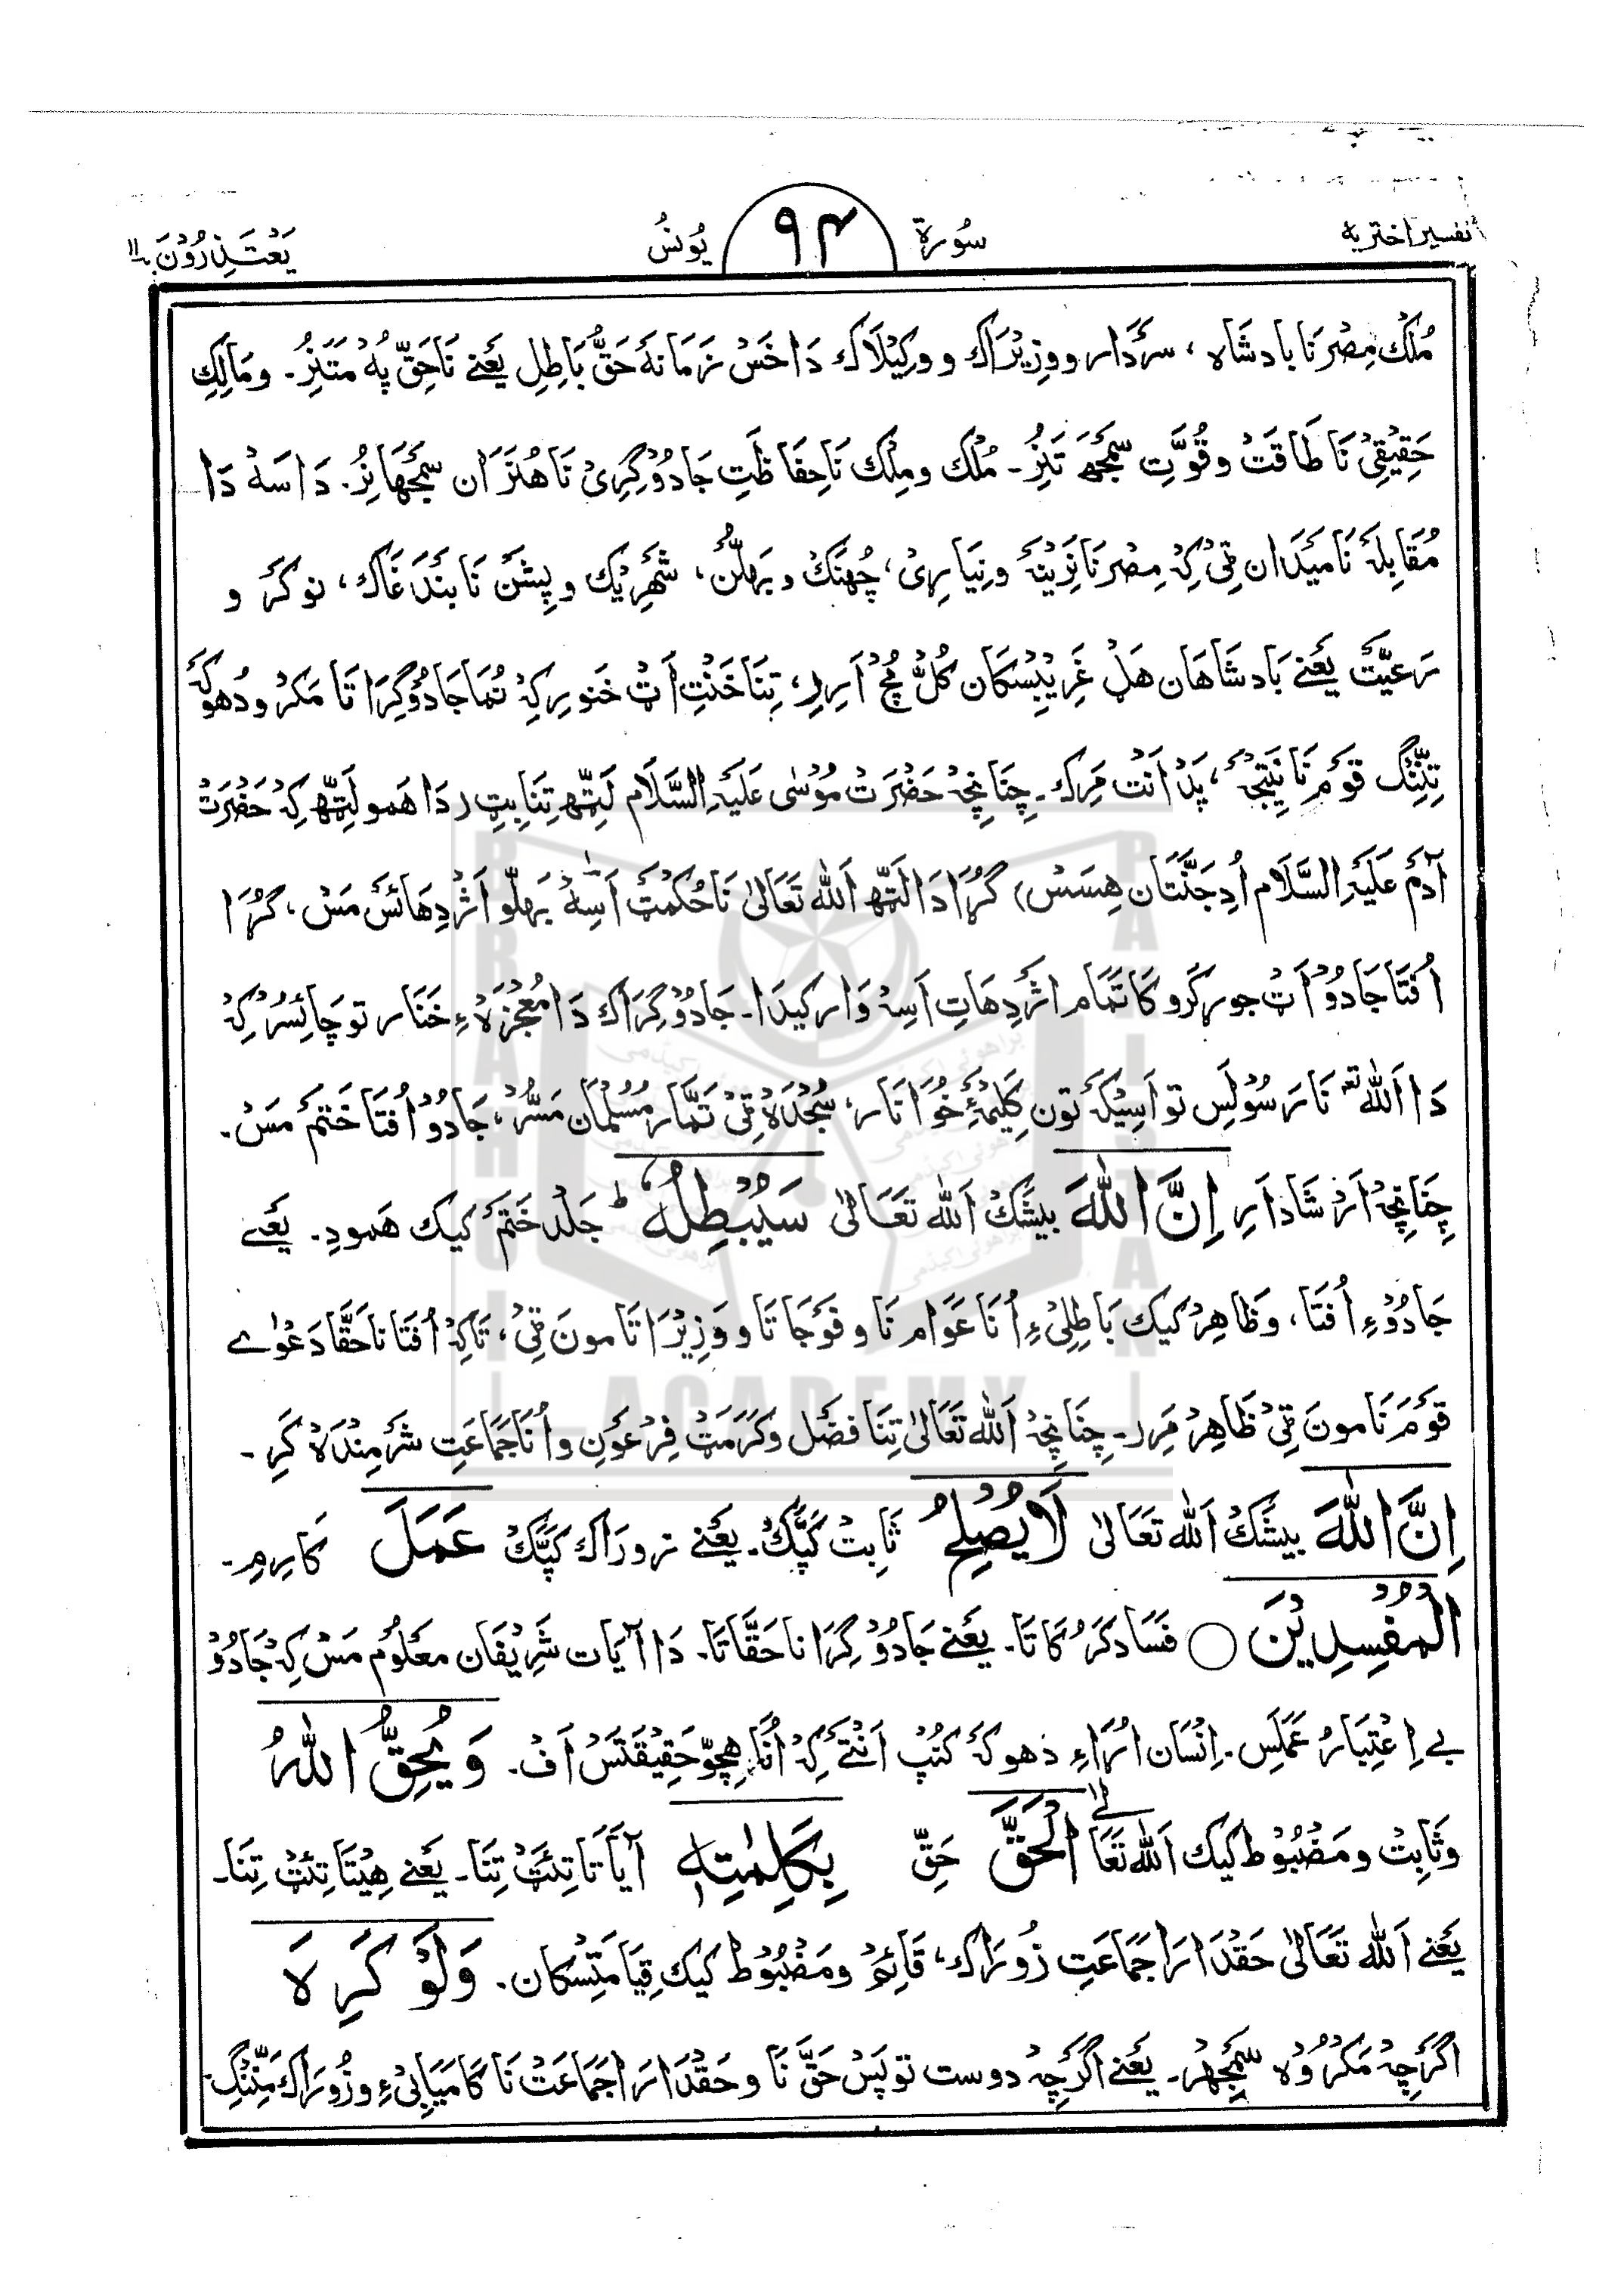 تفسیر اختریه سُورۃ ۹۴ یُونسُ یَعْتَذِرُوْنَ ۱۱
مُلکْ مِصْرنَا بادشَاہ، سرَدار و وزِیْرَاک و وکِیْلَاک دَا خَسْ زَمَانہَ حَقُّ بَاطِلِ یَعْنے نَاحَقِّ پہُ مَتَنِزُ۔ و مَالِکِ
حَقِیْقِیْ نَا طَاقَتْ و قُوَّتِ سَمَجھَ تَنِزُ۔ مُلْک و مِلْک نَا حِفَاظَتِ جَادُوْگِرِیْ نَا هُنَرَان سَمَجْهَانِزُ۔ دَاسَہْ دَا
مُقَابِلہَ نَا مَیْدَان ٹِیْ کِہْ مِصْرنَا نَرِیْنہَ و نِیَارِیْ، چُهنَکْ و بَهلُّنْ، شَهْرِیْک و پِیشَنْ نَا بَنْدَغَاک، نوکَرْ و
رَعِیَّتْ یَعْنے بَادشَاهَان هَلْ غَرِیْبِسْکَان کُلّ مُچْ اَرِر، تِنَا خَنْتِ اَٹْ خَنورِ کِہْ نُمَا جَادُوْگِرَاتَا مَکرْ و دُهوکہَ
تِنِّنْگ قَوْم نَا نَتِیْجہْ، پَدْ اَنْت مَرِک۔ چِنَانچِہْ حَضْرَتْ مُوْسٰی عَلَیْہِ السَّلَام لَٹِّهِ تِنَا بِتِ (دَا هَمو لَٹِّهْ کِہْ حَضْرَتْ
اٰدَمْ عَلَیْہِ السَّلَام اُدِ جَنَّتَان هِسَسْ) گُرَا دَا لَٹِّهْ اَللہ تَعَالٰی نَا حُکْمَٹْ اَسِہْ بَهلّو اَژْدِهَائَسْ مَسْ، گُرَا
اُفتَا جَادُوْ اَٹْ جور کَرو کَا تَمَام اژْدِهَاتِ اَسِہْ وَار کیدَا۔ جَادُوْگِرَاک دَا مُعْجِزَہْ ءِ خَنَار تو چَائِسُر کِہْ
دَا اَللہ تعہ نَا رَسُوْلَسِ تو اَسِیْکَہ تون کَلِیْمَہْ ءِ خُوَانَار، سَجْدَہْ ٹِیْ تَمَّار مُسُلْمَان مَسُّرْ، جَادُوْ اُفتَا خَتْم مَسْ۔
چِنَانچِہْ اَرْشَادْ اَرِ اِنَّ اللّٰہَ بیشَکْ اَللہ تَعَالٰی سَیُبْطِلُہٗ ؕ جَلْد خَتْم کیک هَمودِ۔ یَعْنے
جَادُوْءِ اُفتَا، وَ ظَاهِرْ کیک بَاطِلِیْءِ اُنَا عَوَام نَا و فَوْجَاتَا و وَزِیْرَاتَا مونَ ٹِیْ، تَاکِہْ اُفتَا نَاحَقَّا دَعْوٰاے
قَوْم نَا مونَ ٹِیْ ظَاهِرْ مَرِر۔ چِنَانچِہْ اَللہ تَعَالٰی تِنَا فضْل و کَرَمَٹْ فِرْعَوْنِ و اُنَا جَمَاعَتِ شَرْمِنْدَہْ کَرِ۔
اِنَّ اللّٰہَ بیشَکْ اَللہ تَعَالٰی لَا یُصْلِحُ ثَابِتْ کَپَّکْ۔ یَعْنے زورَاک کَپَّکْ عَمَلَ کَارِمِ۔
الْمُفْسِدِیْنَ ○ فَسَاد کَرُکَاتَا۔ یَعْنے جَادُوْگِرَا نَاحَقَّاتَا۔ دَا اٰیَات شَرِیْفَان مَعلُوْم مَسْ کِہْ جَادُوْ
بے اِعْتِبَارُ عَمَلَسِ۔ اِنْسَان اُرَاءِ دهوکہَ کنُپ اَنْتَے کِہْ اُنَا هِچّوَ حَقِیْقَتَسْ اَفْ۔ وَیُحِقُّ اللّٰہُ
وثَابِتْ و مَضْبُوْط کیک اَللہ تَعَالٰے الْحَقَّ حَقِّ بِکَلِمٰتِہٖ اٰیَاتَا تِئَٹْ تِنَا۔ یَعْنے هِیْتَا تِئَٹْ تِنَا۔
یَعْنے اَللہ تَعَالٰی حَقْدَارَا جَمَاعَتِ زُورَاک، قَائِمْ و مَضْبُوْط کیک قِیَامَتِسْکَان۔ وَلَوْ کَرِہَ
اگَرْچِہْ مَکرُوْہ سَمَجْهِرْ۔ یَعْنے اگَرْچِہْ دوست تو پَسْ حَقَّ نَا و حَقْدَارَا جَمَاعَتْ نَا کَامیَابِیْءِ و زُورَاک مَنِّنْگِ